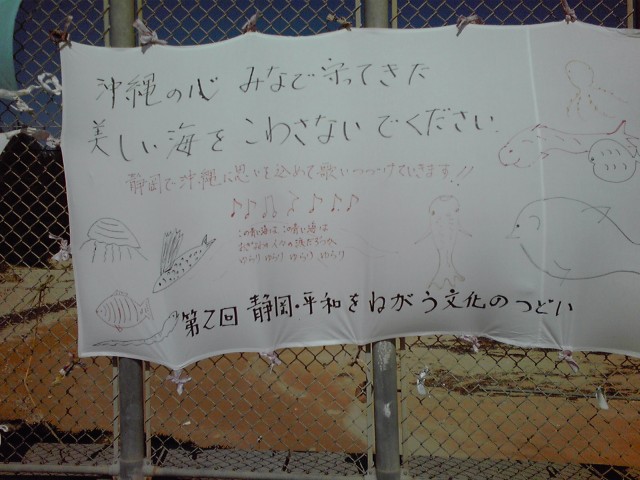 沖縄の心 みなで守ってきた
美しい海をこわさないでください
静岡で沖縄に思いを込めて歌いつづけていきます!!
この青い海は この青い海は
ゆらり ゆらり ゆらり ゆらり
第2回 静岡・平和をねがう文化のつどい